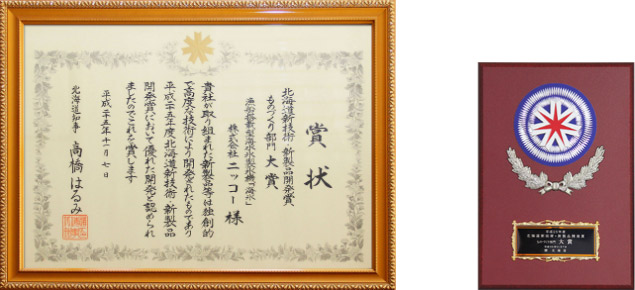 賞状
北海道新技術・新製品開発賞
ものづくり部門 大賞
株式会社ニッコー 様
貴社が取り組まれた新製品等は独創的
で高度な技術により開発されたものであり
平成二十五年度北海道新技術・新製品
開発賞において優れた開発と認められ
ましたのでこれを賞します
平成二十五年十一月七日
北海道知事 高橋はるみ
平成25年度
北海道新技術・新製品開発賞
ものづくり部門 大賞